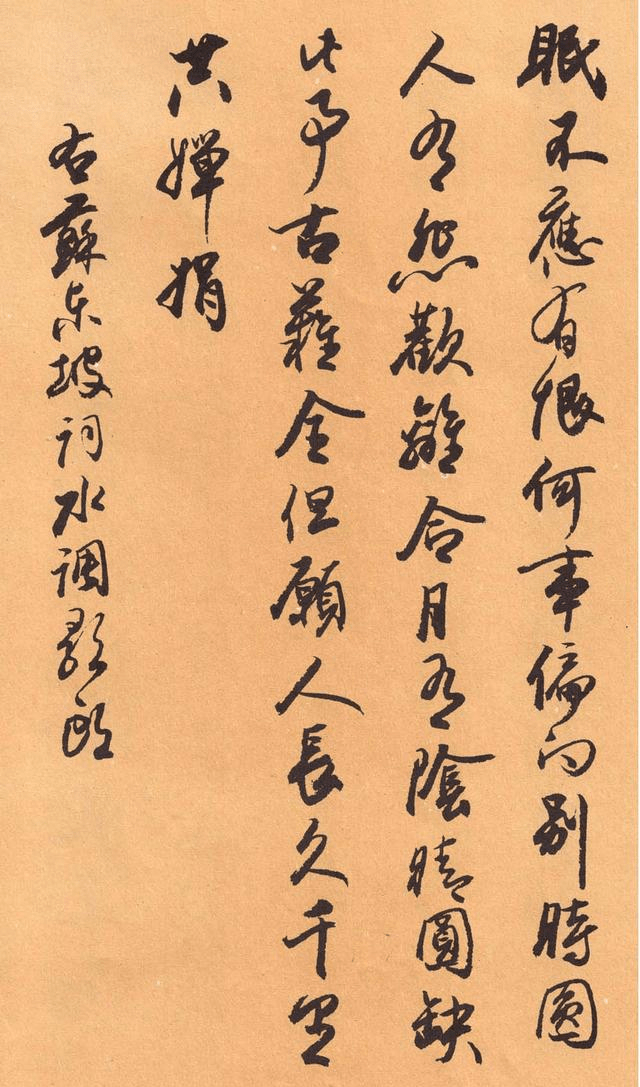 眠不應有恨何事偏向別時圓
人有悲歡離合月有陰晴圓缺
此事古難全但願人長久千里
共嬋娟
右蘇東坡詞水調歌頭